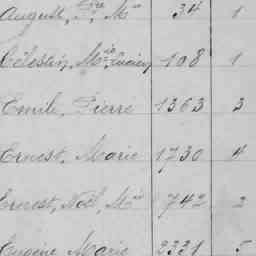 August, Fre, Mie 34 1
Célestin, Mie 108 1
Emile, Pierre 1363 3
Ernest, Marie 1730 4
Ernest, Noël, Mie 742 2
Eugène Marie 2331 5